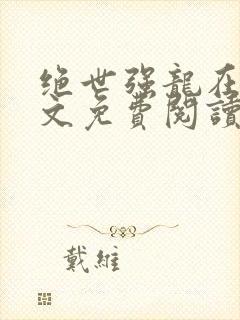 绝世强龍在
文免費閱讀
戴維